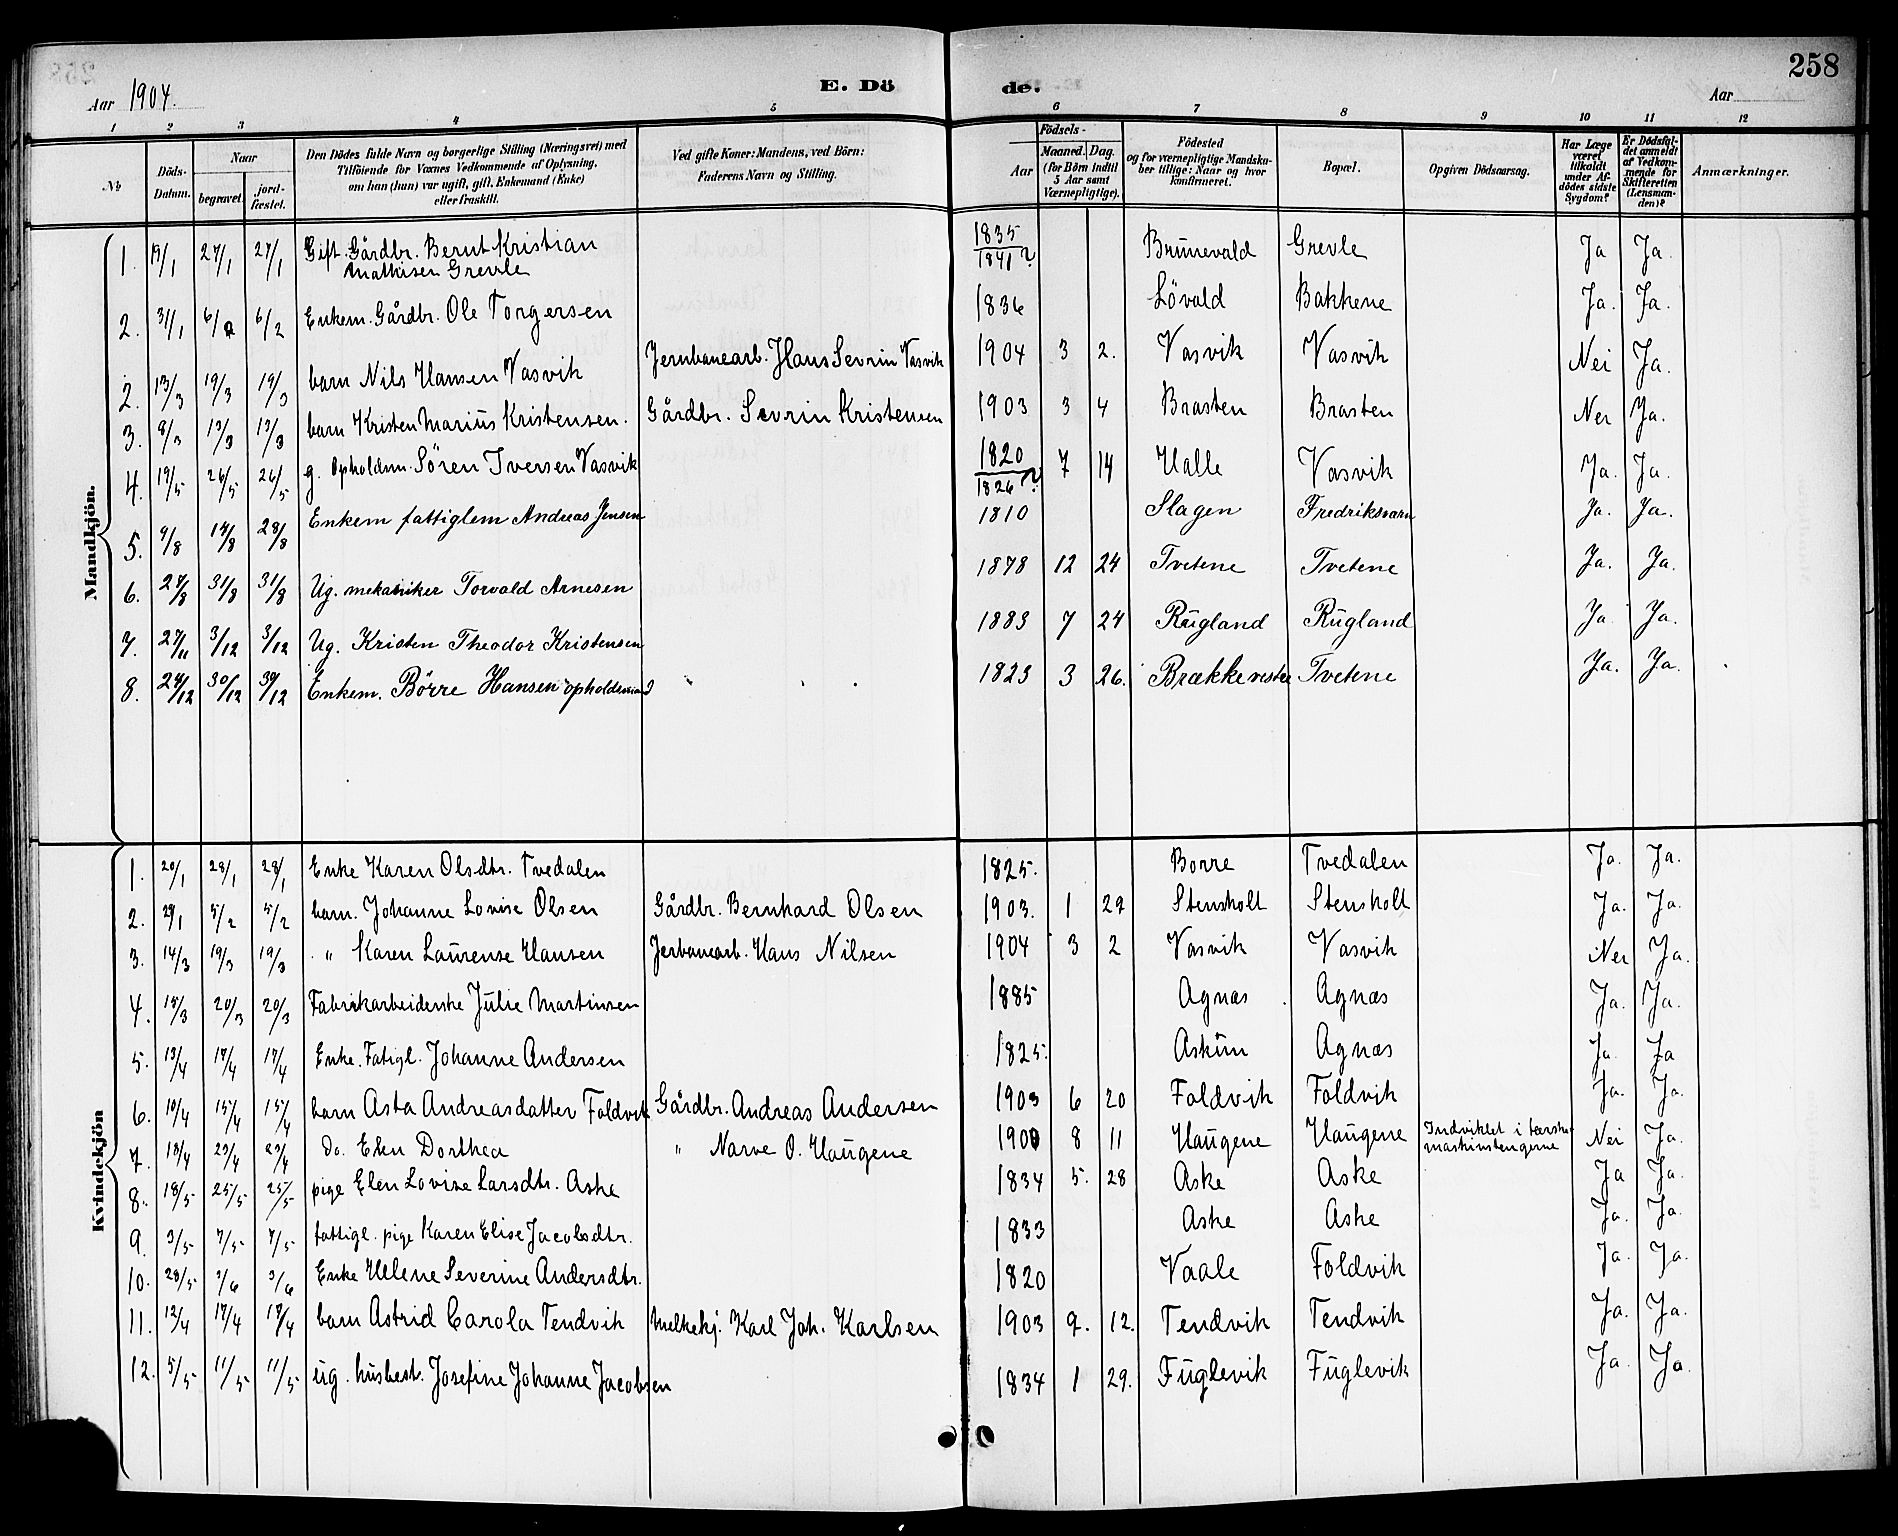 258
Aar 1904.
E. Döde.
Aar
1 2 3 4 5 6 7 8 9 10 11 12
No
Döds-Datum.
Naar
begravet.
jord-fæstet.
Den Dödes fulde Navn og borgerlige Stilling (Næringsvei) med
Tilföiende for Voxnes Vedkommende af Oplysning,
om han (hun) var ugift, gift, Enkemand (Enke)
eller fraskilt.
Ved gifte Koner: Mandens, ved Börn:
Faderens Navn og Stilling.
Födsels-
Aar
Maaned. Dag.
(for Börn indtil
5 Aar samt
Værnepligtige).
Födested
og for værnepligtige Mandska-
ber tillige: Naar og hvor
konfirmeret.
Bopæl.
Opgiven Dödsaarsag.
Har Læge
været
tilkaldt
under Af-
dödes sidste
Sygdom?
Er Dödsfal-
det anmeldt
af Vedkom-
mende for
Skifteretten
(Lensman-
den)?
Anmærkninger.
Mandkjön.
1. 19/1 27/1 27/1 Gift. Gårdbr. Bernt Kristian Mathisen Grevle 1835 1841? Brünevald Grevle Ja Ja.
2. 31/1 6/2 6/2 Enkem. Gårdbr. Ole Torgersen 1836 Lövald Bakkene Ja. Ja.
2. 13/3 19/3 19/3 barn Nils Hansen Vasvik Jernbanearb. Hans Sevrin Vasvik 1904 3 2. Vasvik Vasvik Nei Ja.
3. 9/3 13/3 13/3 barn Kristen Marius Kristensen. Gårdbr. Sevrin Kristensen 1903 3 4 Brasten Brasten Nei Ja.
4. 19/5 26/5 26/5 g. Opholdsm. Sören Iversen Vasvik 1820 1826? 7 14 Halle Vasvik Ja. Ja.
5. 9/8 14/8 28/8 Enkem fattiglem Andreas Jensen 1810 Slagen Fredriksværn Ja. Ja.
6. 27/8 31/8 31/8 Ug. mekaniker Torvald Arnesen 1878 12 24 Tvetene Tvetene Ja. Ja.
7. 27/11 3/12 3/12 Ug. Kristen Theodor Kristensen 1883 7 24 Rugland Rugland Ja. Ja.
8. 24/12 30/12 30/12 Enkem. Börre Hansen opholdsmand 1823 3 26. Brække vestre Tvetene Ja. Ja.
Kvindekjön
1. 20/1 28/1 28/1 Enke Karen Olsdtr. Tvedalen 1825. Borre Tvedalen Ja. Ja.
2. 29/1 5/2 5/2 barn. Johanne Lovise Olsen Gårdbr. Bernhard Olsen 1903. 1 29 Stensholt Stensholt Ja. Ja.
3. 14/3 19/3 19/3 " Karen Laurense Hansen Jerbanearb. Hans Nilsen 1904 3 2 Vasvik Vasvik Nei Ja.
4. 15/3 20/3 20/3 Fabrikarbeiderske Julie Martinsen 1885 Agnæs Agnæs Ja. Ja.
5. 13/4 17/4 17/4 Enke. Fatigl. Johanne Andersen 1825. Askim Agnæs Ja. Ja
6. 10/4 15/4 15/4 barn Asta Andreasdatter Foldvik Gårdbr. Andreas Andersen 1903 6 20 Foldvik Foldvik Ja. Ja.
7. 18/4 23/4 23/4 do. Elen Dorthea " Narve O. Haugene 1900 8 11 Haugene Haugene Indviklet i tærske- maskinstengerne Nei Ja.
8. 18/5 25/5 25/5 pige Elen Lovise Larsdtr. Aske 1834 5. 28 Aske Aske Ja Ja.
9. 3/5 7/5 7/5 fattigl. pige Karen Elise Jacobsdtr. 1833 Aske Aske Ja. Ja.
10. 28/5 3/6 3/6 Enke Helene Severine Andersdtr. 1820 Vaale Foldvik Ja. Ja.
11. 13/4 17/4 17/4 barn Astrid Carola Tendvik Melkekj. Karl Joh. Karlsen 1903 9. 12. Tendvik Tendvik Ja. Ja.
12. 5/5 11/5 11/5 ug. husbest. Josefine Johanne Jacobsen 1834 1 29. Fuglevik Fuglevik Ja. Ja.